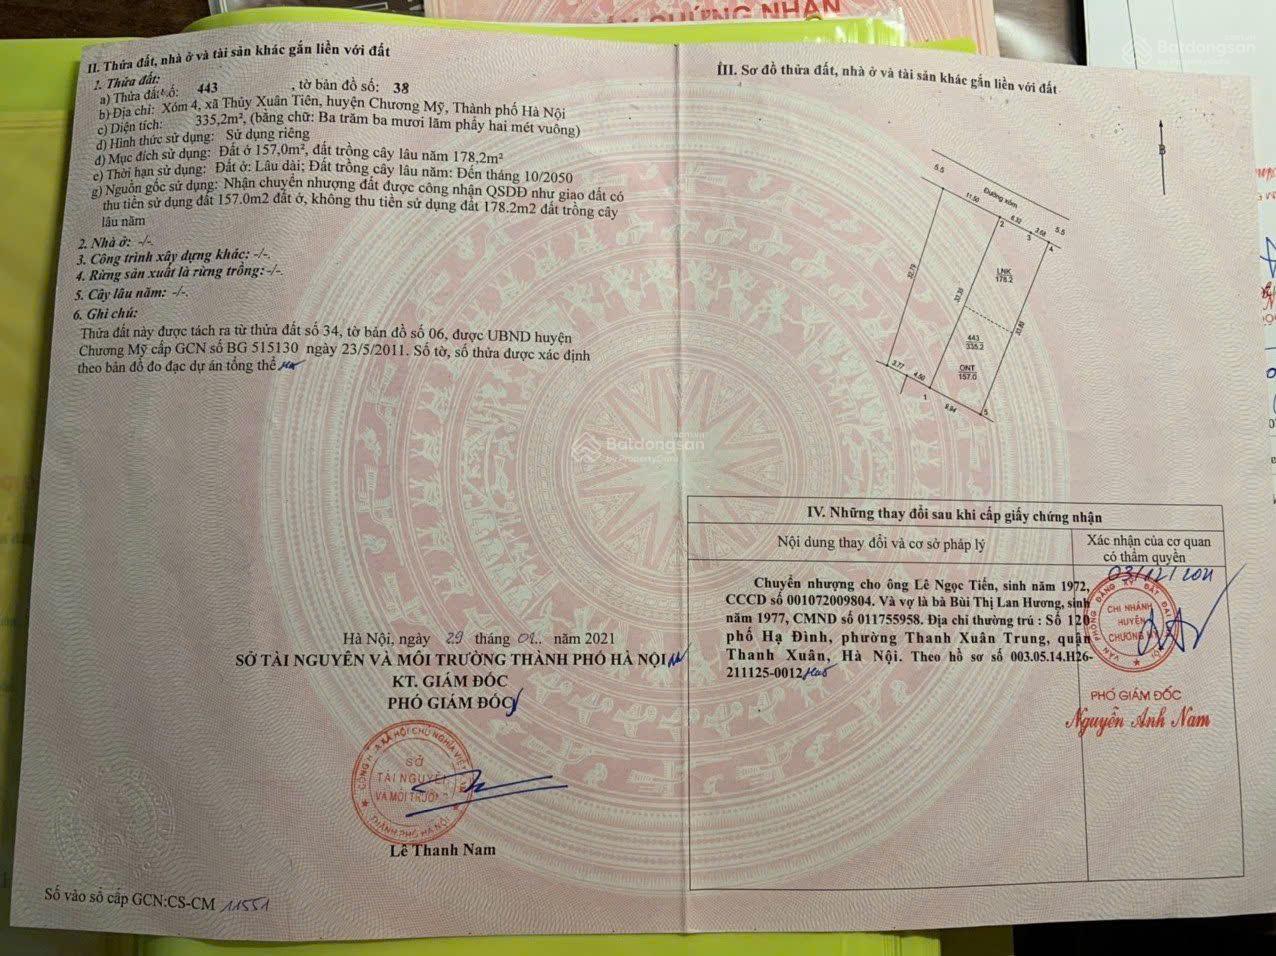 GIẤY CHỨNG NHẬN
Batdongsan
II. Thửa đất, nhà ở và tài sản khác gắn liền với đất
1. Thửa đất:
a) Thửa đất số: 443 , tờ bản đồ số: 38
b) Địa chỉ: Xóm 4, xã Thủy Xuân Tiên, huyện Chương Mỹ, Thành phố Hà Nội
c) Diện tích: 335,2m², (bằng chữ: Ba trăm ba mươi lăm phẩy hai mét vuông)
d) Hình thức sử dụng: Sử dụng riêng
đ) Mục đích sử dụng: Đất ở 157,0m², đất trồng cây lâu năm 178,2m²
e) Thời hạn sử dụng: Đất ở: Lâu dài; Đất trồng cây lâu năm: Đến tháng 10/2050
g) Nguồn gốc sử dụng: Nhận chuyển nhượng đất được công nhận QSDĐ như giao đất có
thu tiền sử dụng đất 157.0m2 đất ở, không thu tiền sử dụng đất 178.2m2 đất trồng cây
lâu năm
2. Nhà ở: -/-.
3. Công trình xây dựng khác: -/-.
4. Rừng sản xuất là rừng trồng:-/-.
5. Cây lâu năm: -/-.
6. Ghi chú:
Thửa đất này được tách ra từ thửa đất số 34, tờ bản đồ số 06, được UBND huyện
Chương Mỹ cấp GCN số BG 515130 ngày 23/5/2011. Số tờ, số thửa được xác định
theo bản đồ đo đạc dự án tổng thể
Hà Nội, ngày 29 tháng 01.. năm 2021
SỞ TÀI NGUYÊN VÀ MÔI TRƯỜNG THÀNH PHỐ HÀ NỘI
KT. GIÁM ĐỐC
PHÓ GIÁM ĐỐC
CỘNG HÒA XÃ HỘI CHỦ NGHĨA VIỆT NAM
SỞ
TÀI NGUYÊN
VÀ MÔI TRƯỜNG
THÀNH PHỐ HÀ NỘI
Lê Thanh Nam
Số vào sổ cấp GCN:CS-CM 11551
III. Sơ đồ thửa đất, nhà ở và tài sản khác gắn liền với đất
B
5.5
Đường xóm
11.50
6.32
3.68
5.5
2
3
4
LNK
178.2
32.79
33.35
33.88
443
335.2
ONT
157.0
3.77
4.50
1
9.94
5
Batdongsan
by PropertyGuru
IV. Những thay đổi sau khi cấp giấy chứng nhận
Nội dung thay đổi và cơ sở pháp lý
Xác nhận của cơ quan
có thẩm quyền
Chuyển nhượng cho ông Lê Ngọc Tiến, sinh năm 1972,
CCCD số 001072009804. Và vợ là bà Bùi Thị Lan Hương, sinh
năm 1977, CMND số 011755958. Địa chỉ thường trú : Số 120
phố Hạ Đình, phường Thanh Xuân Trung, quận
Thanh Xuân, Hà Nội. Theo hồ sơ số 003.05.14.H26-
211125-0012
03/12/2021
VĂN PHÒNG ĐĂNG KÝ ĐẤT ĐAI
CHI NHÁNH
HUYỆN
CHƯƠNG MỸ
PHÓ GIÁM ĐỐC
Nguyễn Anh Nam